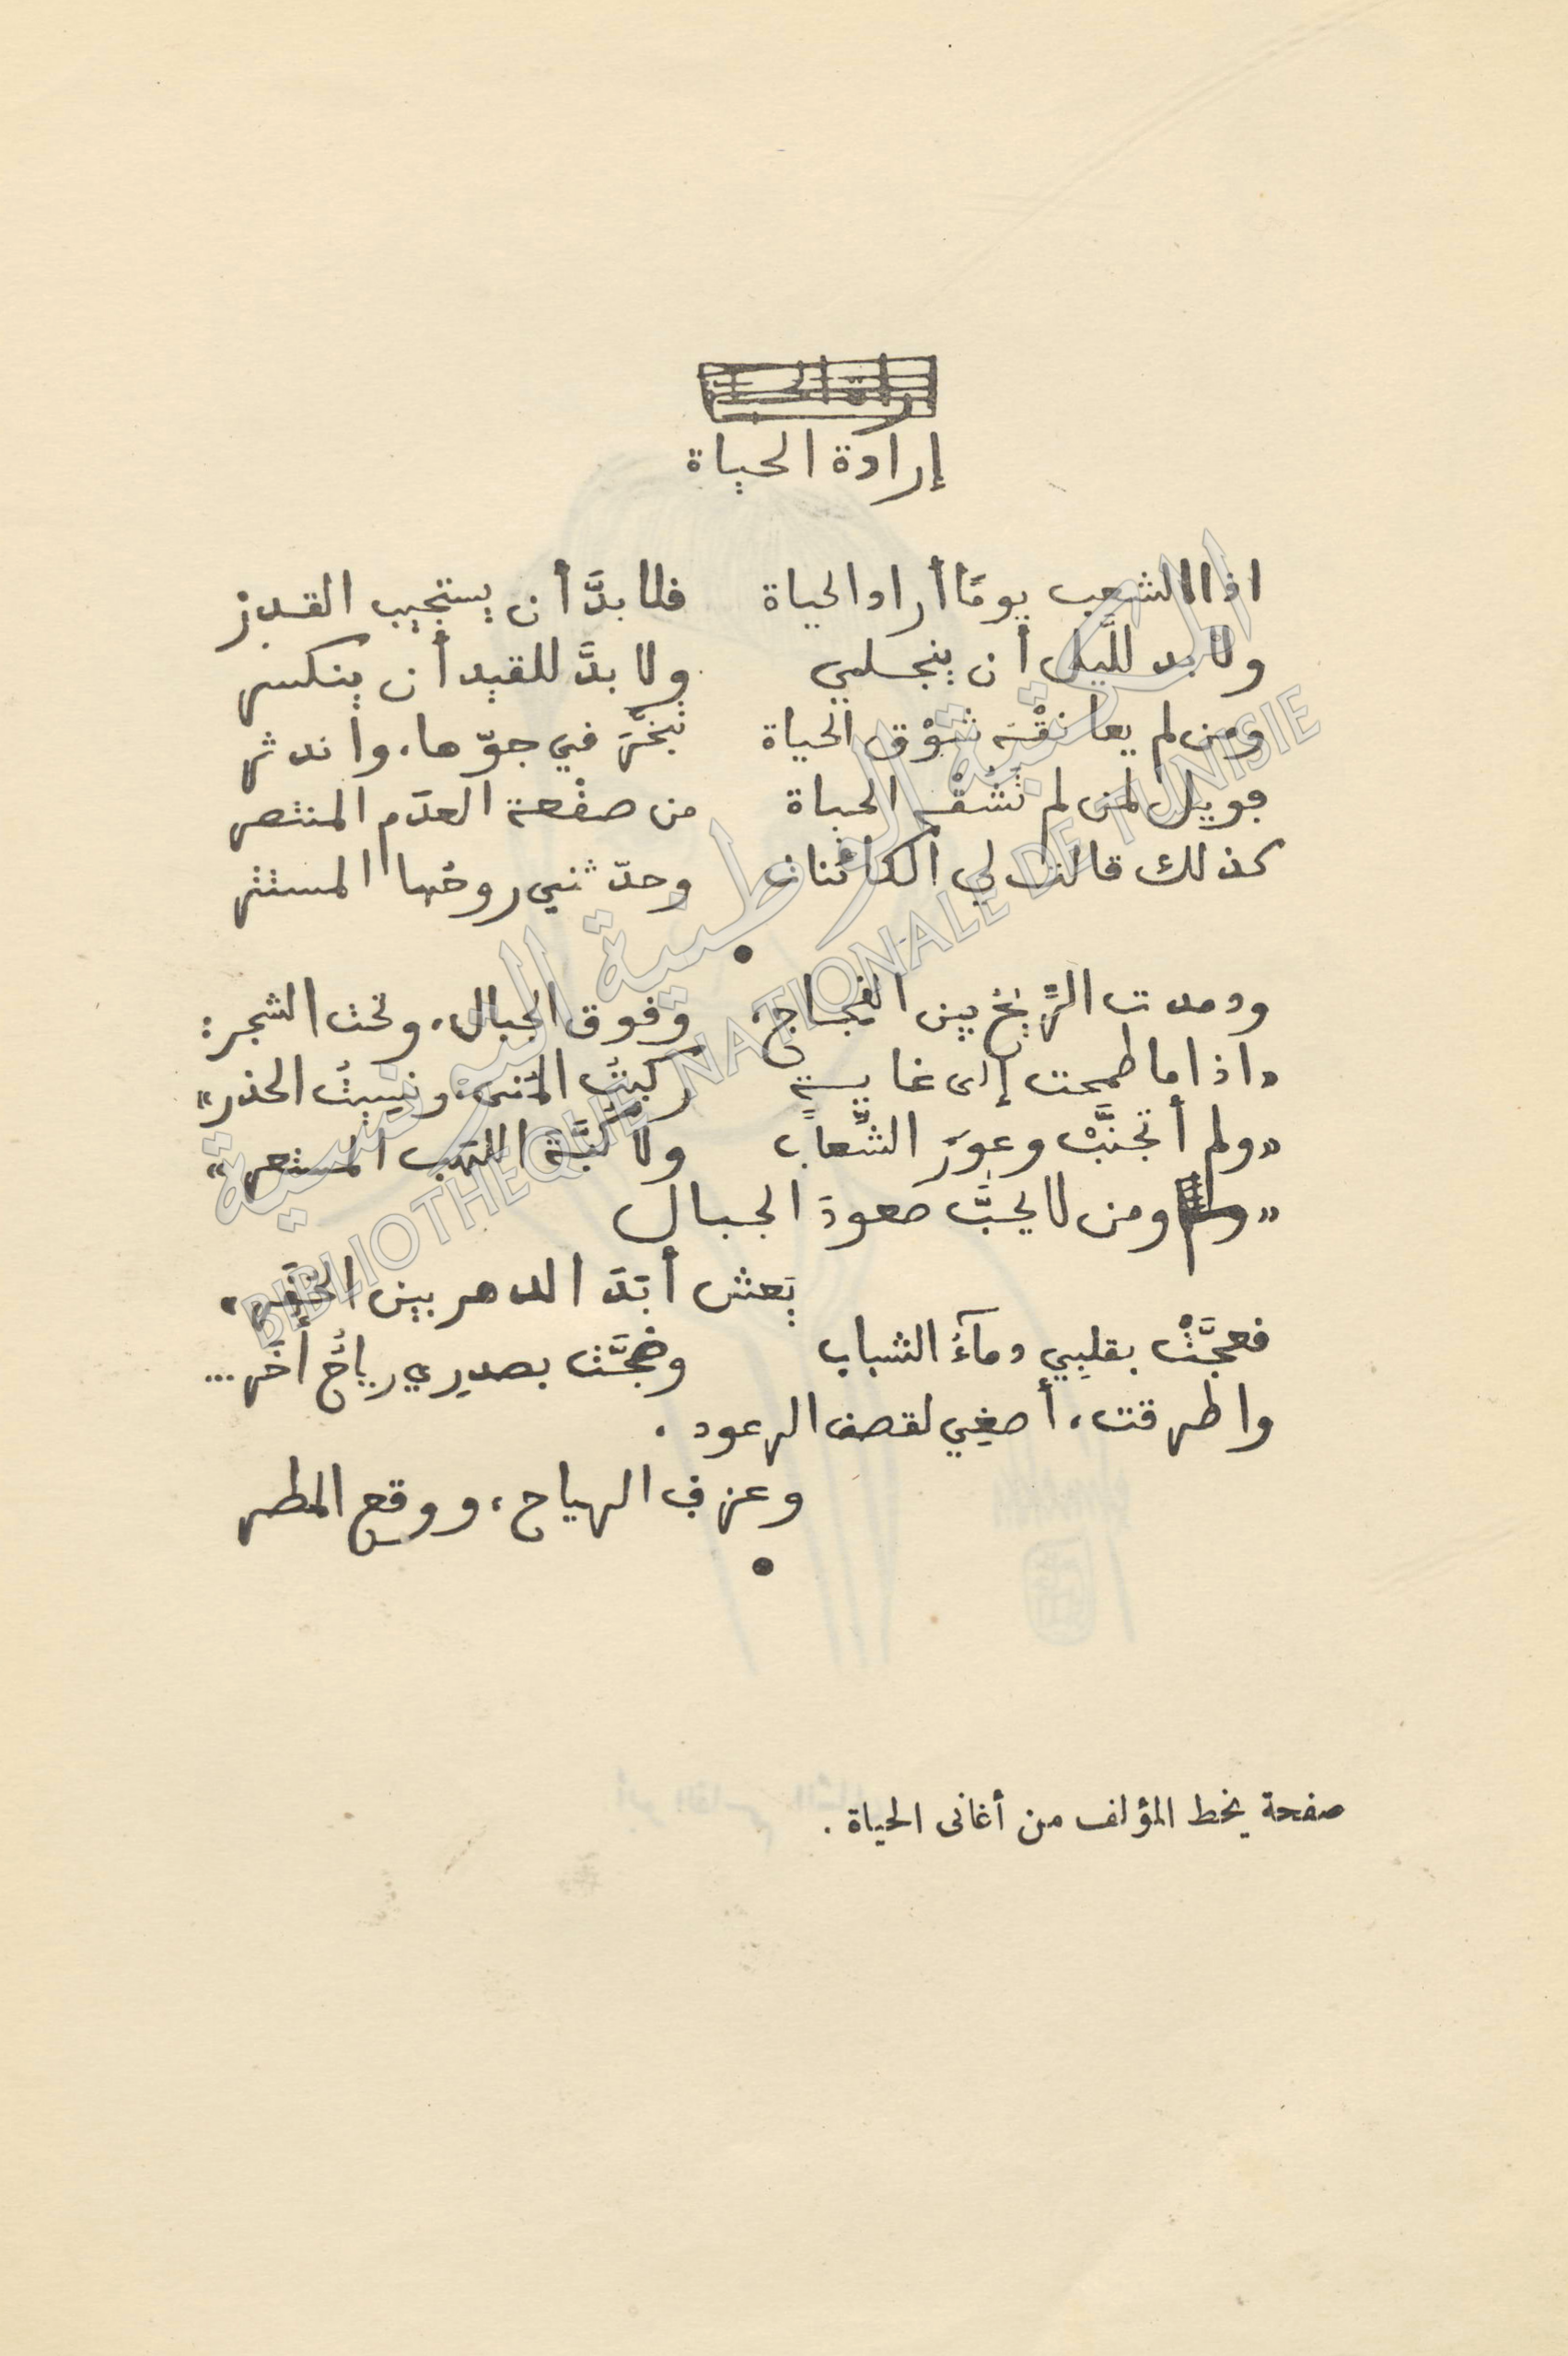 إرادة الحياة
اذا الشعب يومًا أراد الحياة فلا بدَّ أن يستجيب القدرْ
ولا بد للَّيل أن ينجلي ولا بدَّ للقيد أن ينكسر
ومن لم يعانقْه شوْق الحياة تبخَّرَ في جوّها، واندثر
فويل لمن لم تَشُقْه الحياة من صفْعة العدَم المنتصر
كذلك قالت لي الكائنات وحدّثني روحُها المستتر
ودمدمت الرِّيحُ بين الفجاج، وفوق الجبال، وتحت الشجر:
«اذا ما طمحت إلى غايةٍ ركبتُ المُنى، ونسِيتُ الحذر»
«ولم أتجنَّبْ وعورَ الشِّعاب ولا كُبَّةَ اللهَب المستعر»
«ومن لا يحبَّ صعودَ الجبال
يَعش أبَدَ الدهر بين الحُفَر»
فعجَّتْ بقلبِي دمآءُ الشباب وضجَّت بصدرِي رياحُ أُخَر...
واطرقت، أصغِي لقصف الرعود.
وعزفِ الرياح، ووقعِ المطر
صفحة بخط المؤلف من أغاني الحياة.
المكتبة الوطنية التونسية
BIBLIOTHEQUE NATIONALE DE TUNISIE